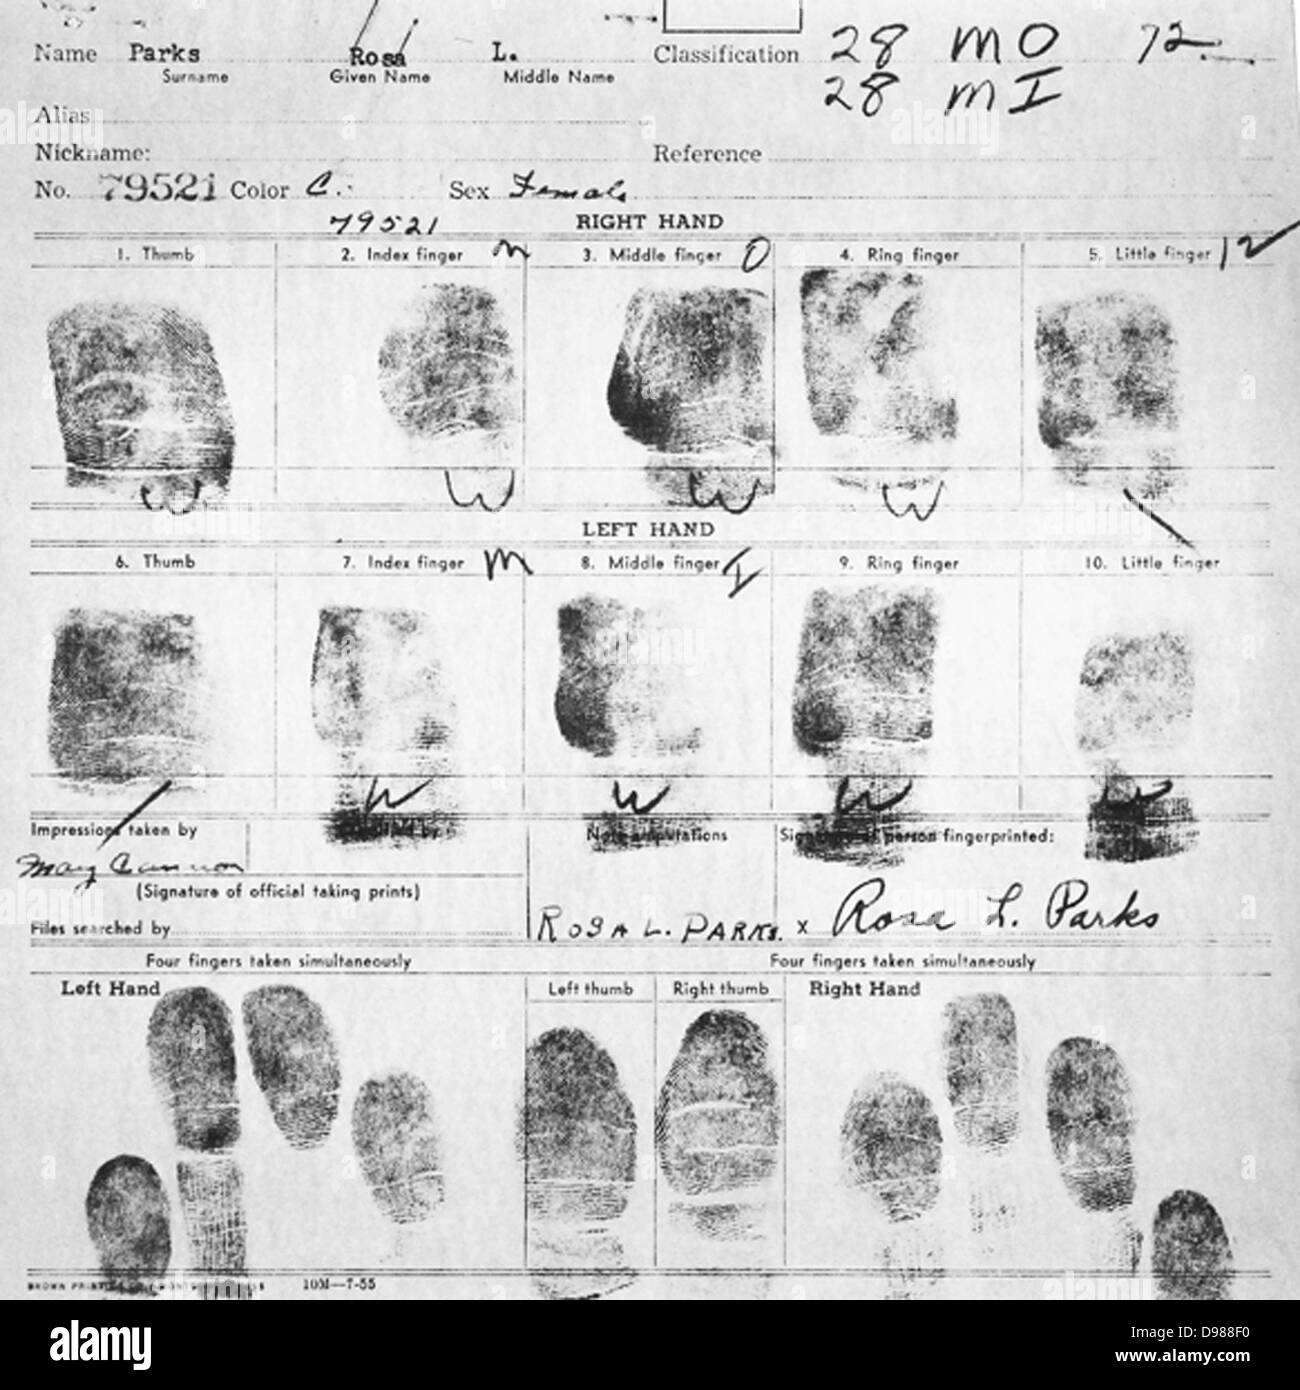 Name Parks Rosa L. Classification 28 MO 12
Surname Given Name Middle Name 28 MI
Alias
Nickname: Reference
No. 79521 Color C. Sex Female
79521 RIGHT HAND
1. Thumb 2. Index finger M 3. Middle finger O 4. Ring finger 5. Little finger 12
W W W W \
LEFT HAND
6. Thumb 7. Index finger M 8. Middle finger I 9. Ring finger 10. Little finger
/ W W W W
Impressions taken by Note amputations Signature of person fingerprinted:
Mary Cannon
(Signature of official taking prints)
Files searched by ROSA L. PARKS. x Rosa L. Parks
Four fingers taken simultaneously Four fingers taken simultaneously
Left Hand Left thumb Right thumb Right Hand
BROWN 10M—7-55
alamy
Image ID: D988F0
www.alamy.com